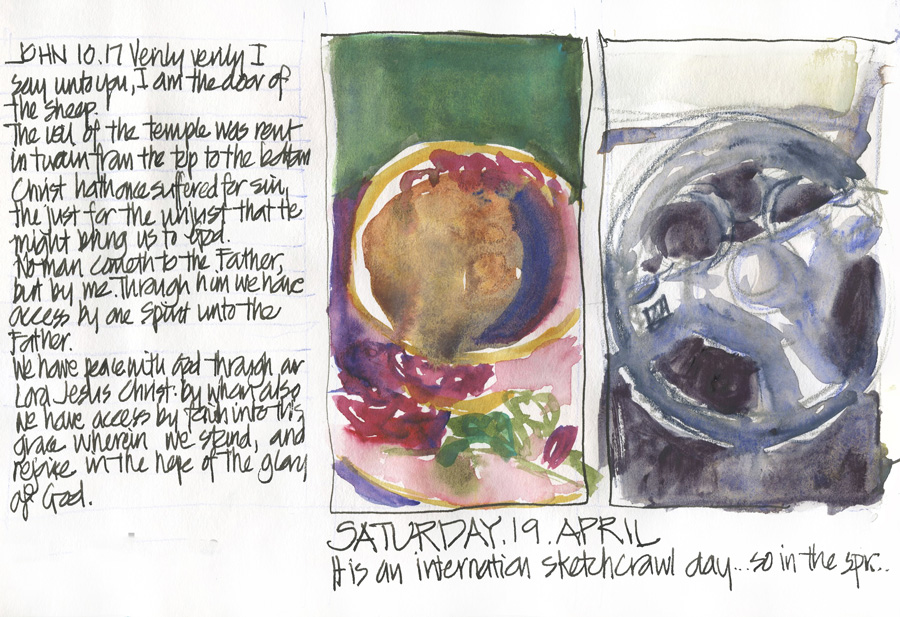 JOHN 10.17 Verily verily I
say unto you, I am the door of
the sheep.
The veil of the temple was rent
in twain from the top to the bottom
Christ hath once suffered for sin,
the just for the unjust that He
might bring us to God.
No man cometh to the Father,
but by me. Through him we have
access by one Spirit unto the
Father.
We have peace with God through our
Lord Jesus Christ: by whom also
we have access by faith into this
grace wherein we stand, and
rejoice in the hope of the glory
of God.
SATURDAY.19.APRIL
It is an internation sketchcrawl day...so in the spir..